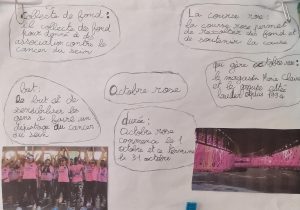 collecte de fond :
la collecte de fond
pour donné a des
association contre le
cancer du sein
La course rose :
la course rose permet
de raccolter des fond et
de soutenir la cause
qui gère octobre rose :
le magasin Marie Claire
et
lauder depuis 1994
but :
le but et de
sensibiliser les
gens a faire un
dépistage du cancer
du sein
Octobre rose
durée :
Octobre rose
commence le 1
octobre et ce termine
le 31 octobre